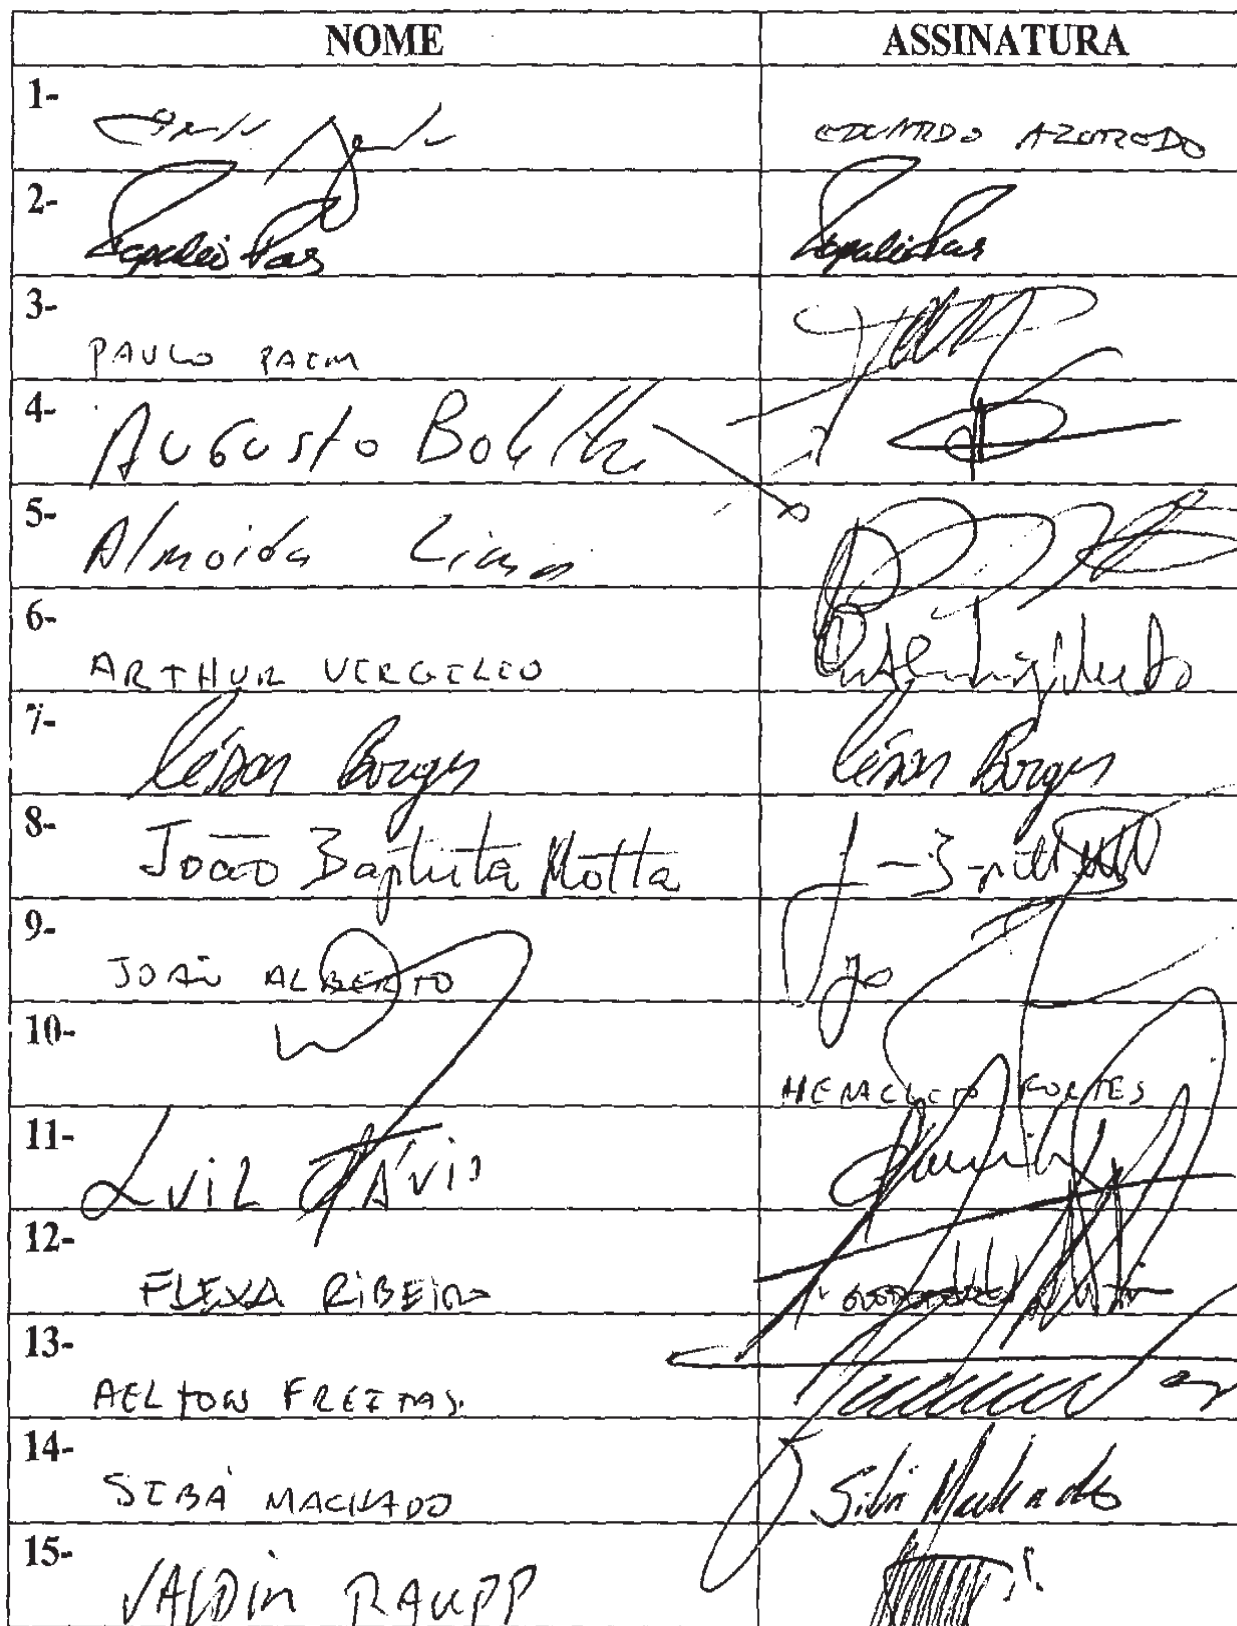 NOME ASSINATURA
1- EDUARDO AZEREDO
2- Papaléo Paes Papaléo Paes
3- PAULO PAIM
4- AUGUSTO Botelho
5- Almeida Lima
6- ARTHUR VIRGILIO
7- César Borges César Borges
8- João Baptista Motta
9- JOÃO ALBERTO
10- HERACLITO FORTES
11- LUIZ OTÁVIO
12- FLEXA RIBEIRO
13- AELTON FREITAS.
14- SIBÁ MACHADO Sibá Machado
15- VALDIR RAUPP